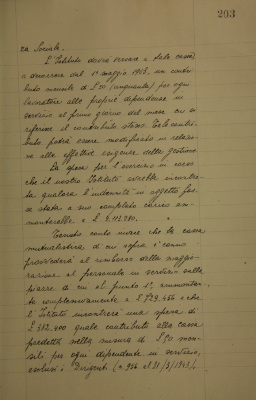 293
za Sociale.
L'Istituto dovrà versare a tale cassa
a decorrere dal 1° maggio 1943, un contri-
buto mensile di £ 50 (cinquanta) per ogni
lavoratore alle proprie dipendenze in
servizio al primo giorno del mese cui si
riferisce il contributo stesso. Tale contri-
buto potrà essere modificato in relazio-
ne alle effettive esigenze della gestione.
La spesa per l'esercizio in corso
che il nostro Istituto avrebbe incontra-
ta qualora l'indennità in oggetto fos-
se stata a suo completo carico am-
monterebbe a £
Tenuto conto invece che la cassa
mutualistica di cui sopra è cenno
provvederà al rimborso della maggio-
razione al personale in servizio nelle
piazze di cui al punto 1°, ammontan-
te complessivamente a £ 729.456 e che
l'Istituto incontrerà una spesa di
£ 382.400 quale contributi alla cassa
predetta nella misura di £ 50 men-
sili per ogni dipendente in servizio,
esclusi i Dirigenti (n. 956 al 31/3/1943),